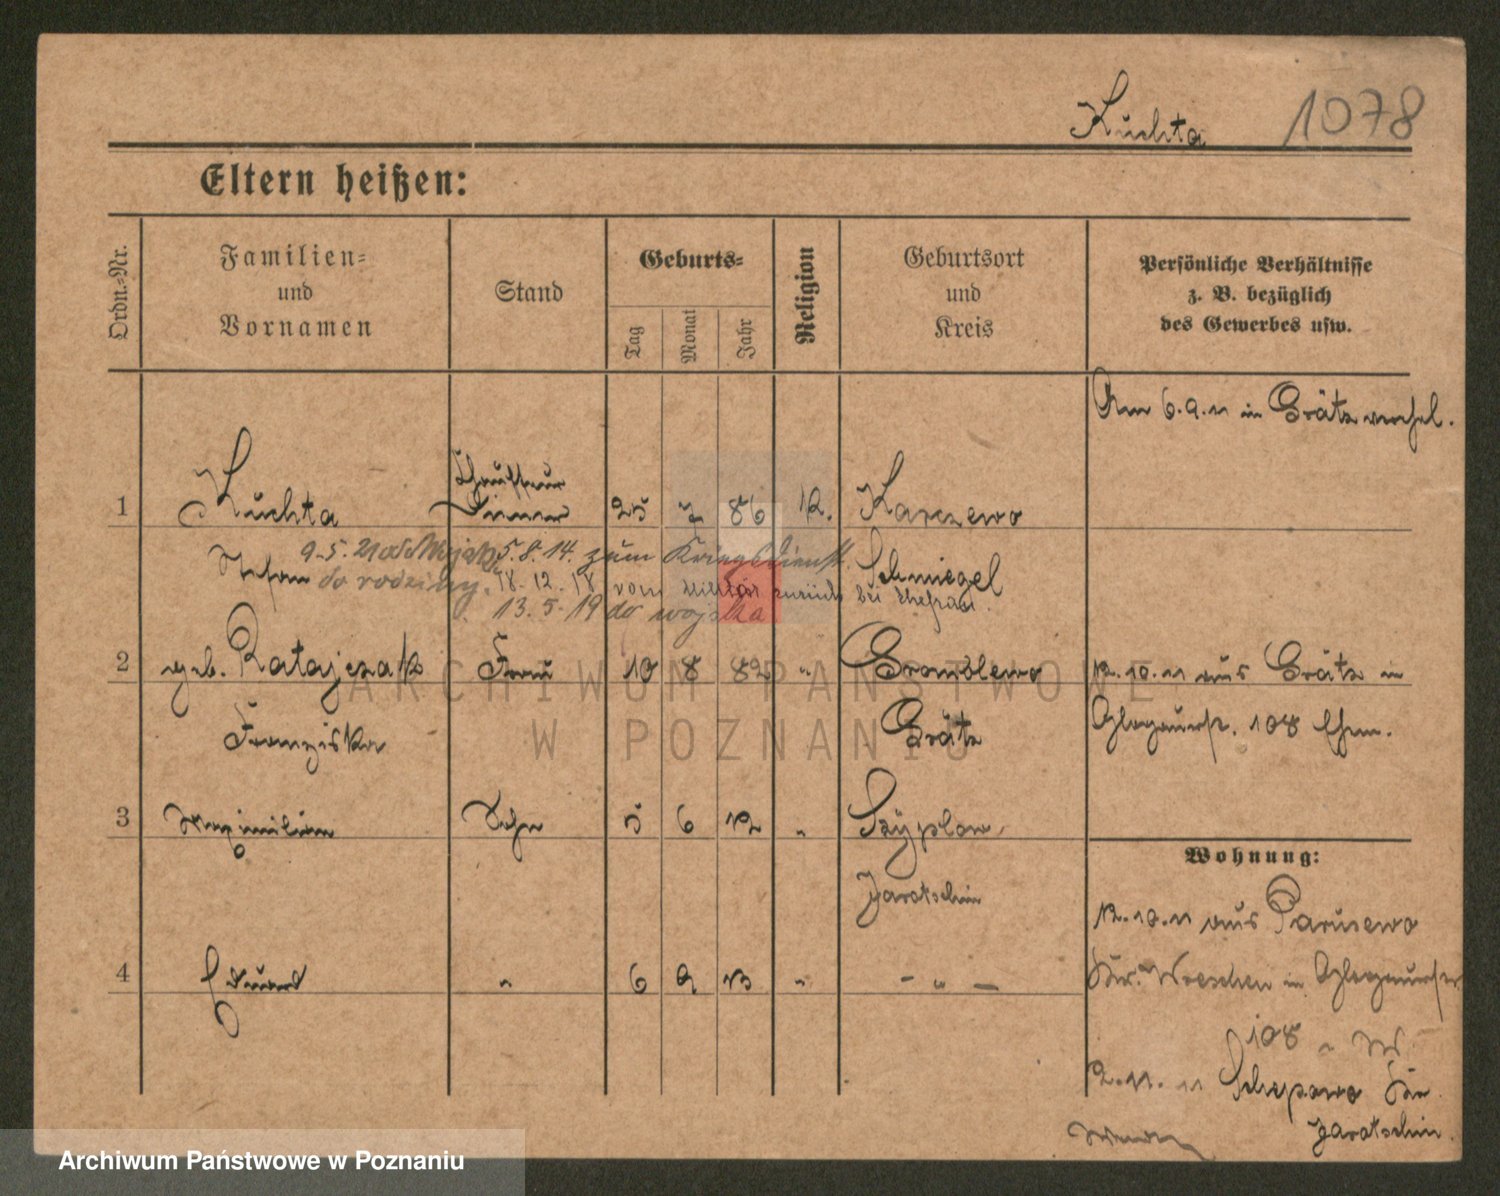 Kuchta 1078
Eltern heißen:
Ordn.=Nr.
Familien=
und
Vornamen
Stand
Geburts=
Tag
Monat
Jahr
Religion
Geburtsort
und
Kreis
Persönliche Verhältnisse
z. B. bezüglich
des Gewerbes usw.
Am 6.9.11 in Grätz verehel.
Chauffeur
1 Kuchta Diener 25 7 86 K. Karczewo
Stefan 9-5.21 od Wojska 5.8.14. zum Kriegsdienst. Schmiegel
do rodziny. 18-12-18 vom Militär zurück bei Ehefrau.
13.5-19 do wojska
2 geb. Ratajczak Frau 10 8 82 " Gromblewo 12.10.11 aus Grätz in
Franziska Grätz Glogauerstr. 108 Ehem.
3 Maximilian Sohn 5 6 12 " Szyplow
Jaratschin
Wohnung:
12.10.11 aus Parusewo
4 Eduard " 6 9 13 " - " -
Kr. Wreschen in Glogauerstr
108
2.11.11 Schepowo Kr.
Jaratschin
Wenden
ARCHIWUM PAŃSTWOWE
W POZNANIU
Archiwum Państwowe w Poznaniu